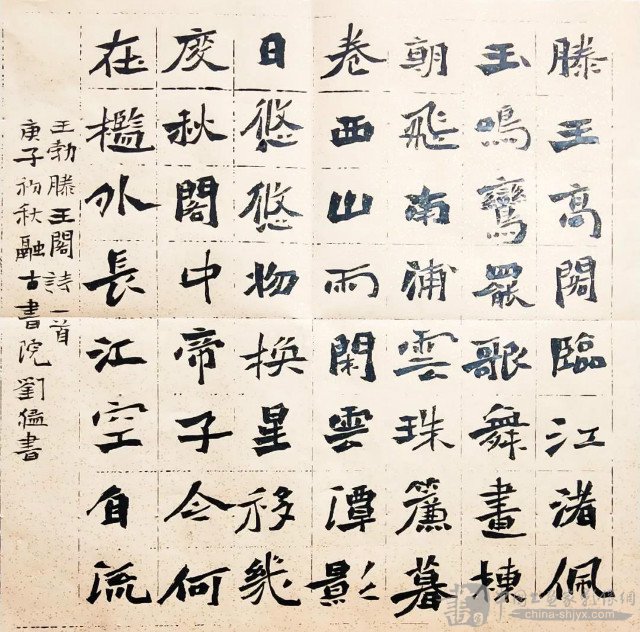 滕王高閣臨江渚佩
玉鳴鸞罷歌舞畫棟
朝飛南浦雲珠簾暮
卷西山雨閑雲潭影
日悠悠物換星移幾
度秋閣中帝子今何
在檻外長江空自流
王勃滕王閣詩一首
庚子初秋融古書院劉猛書
中国书画家影像網
china-shjyx.com